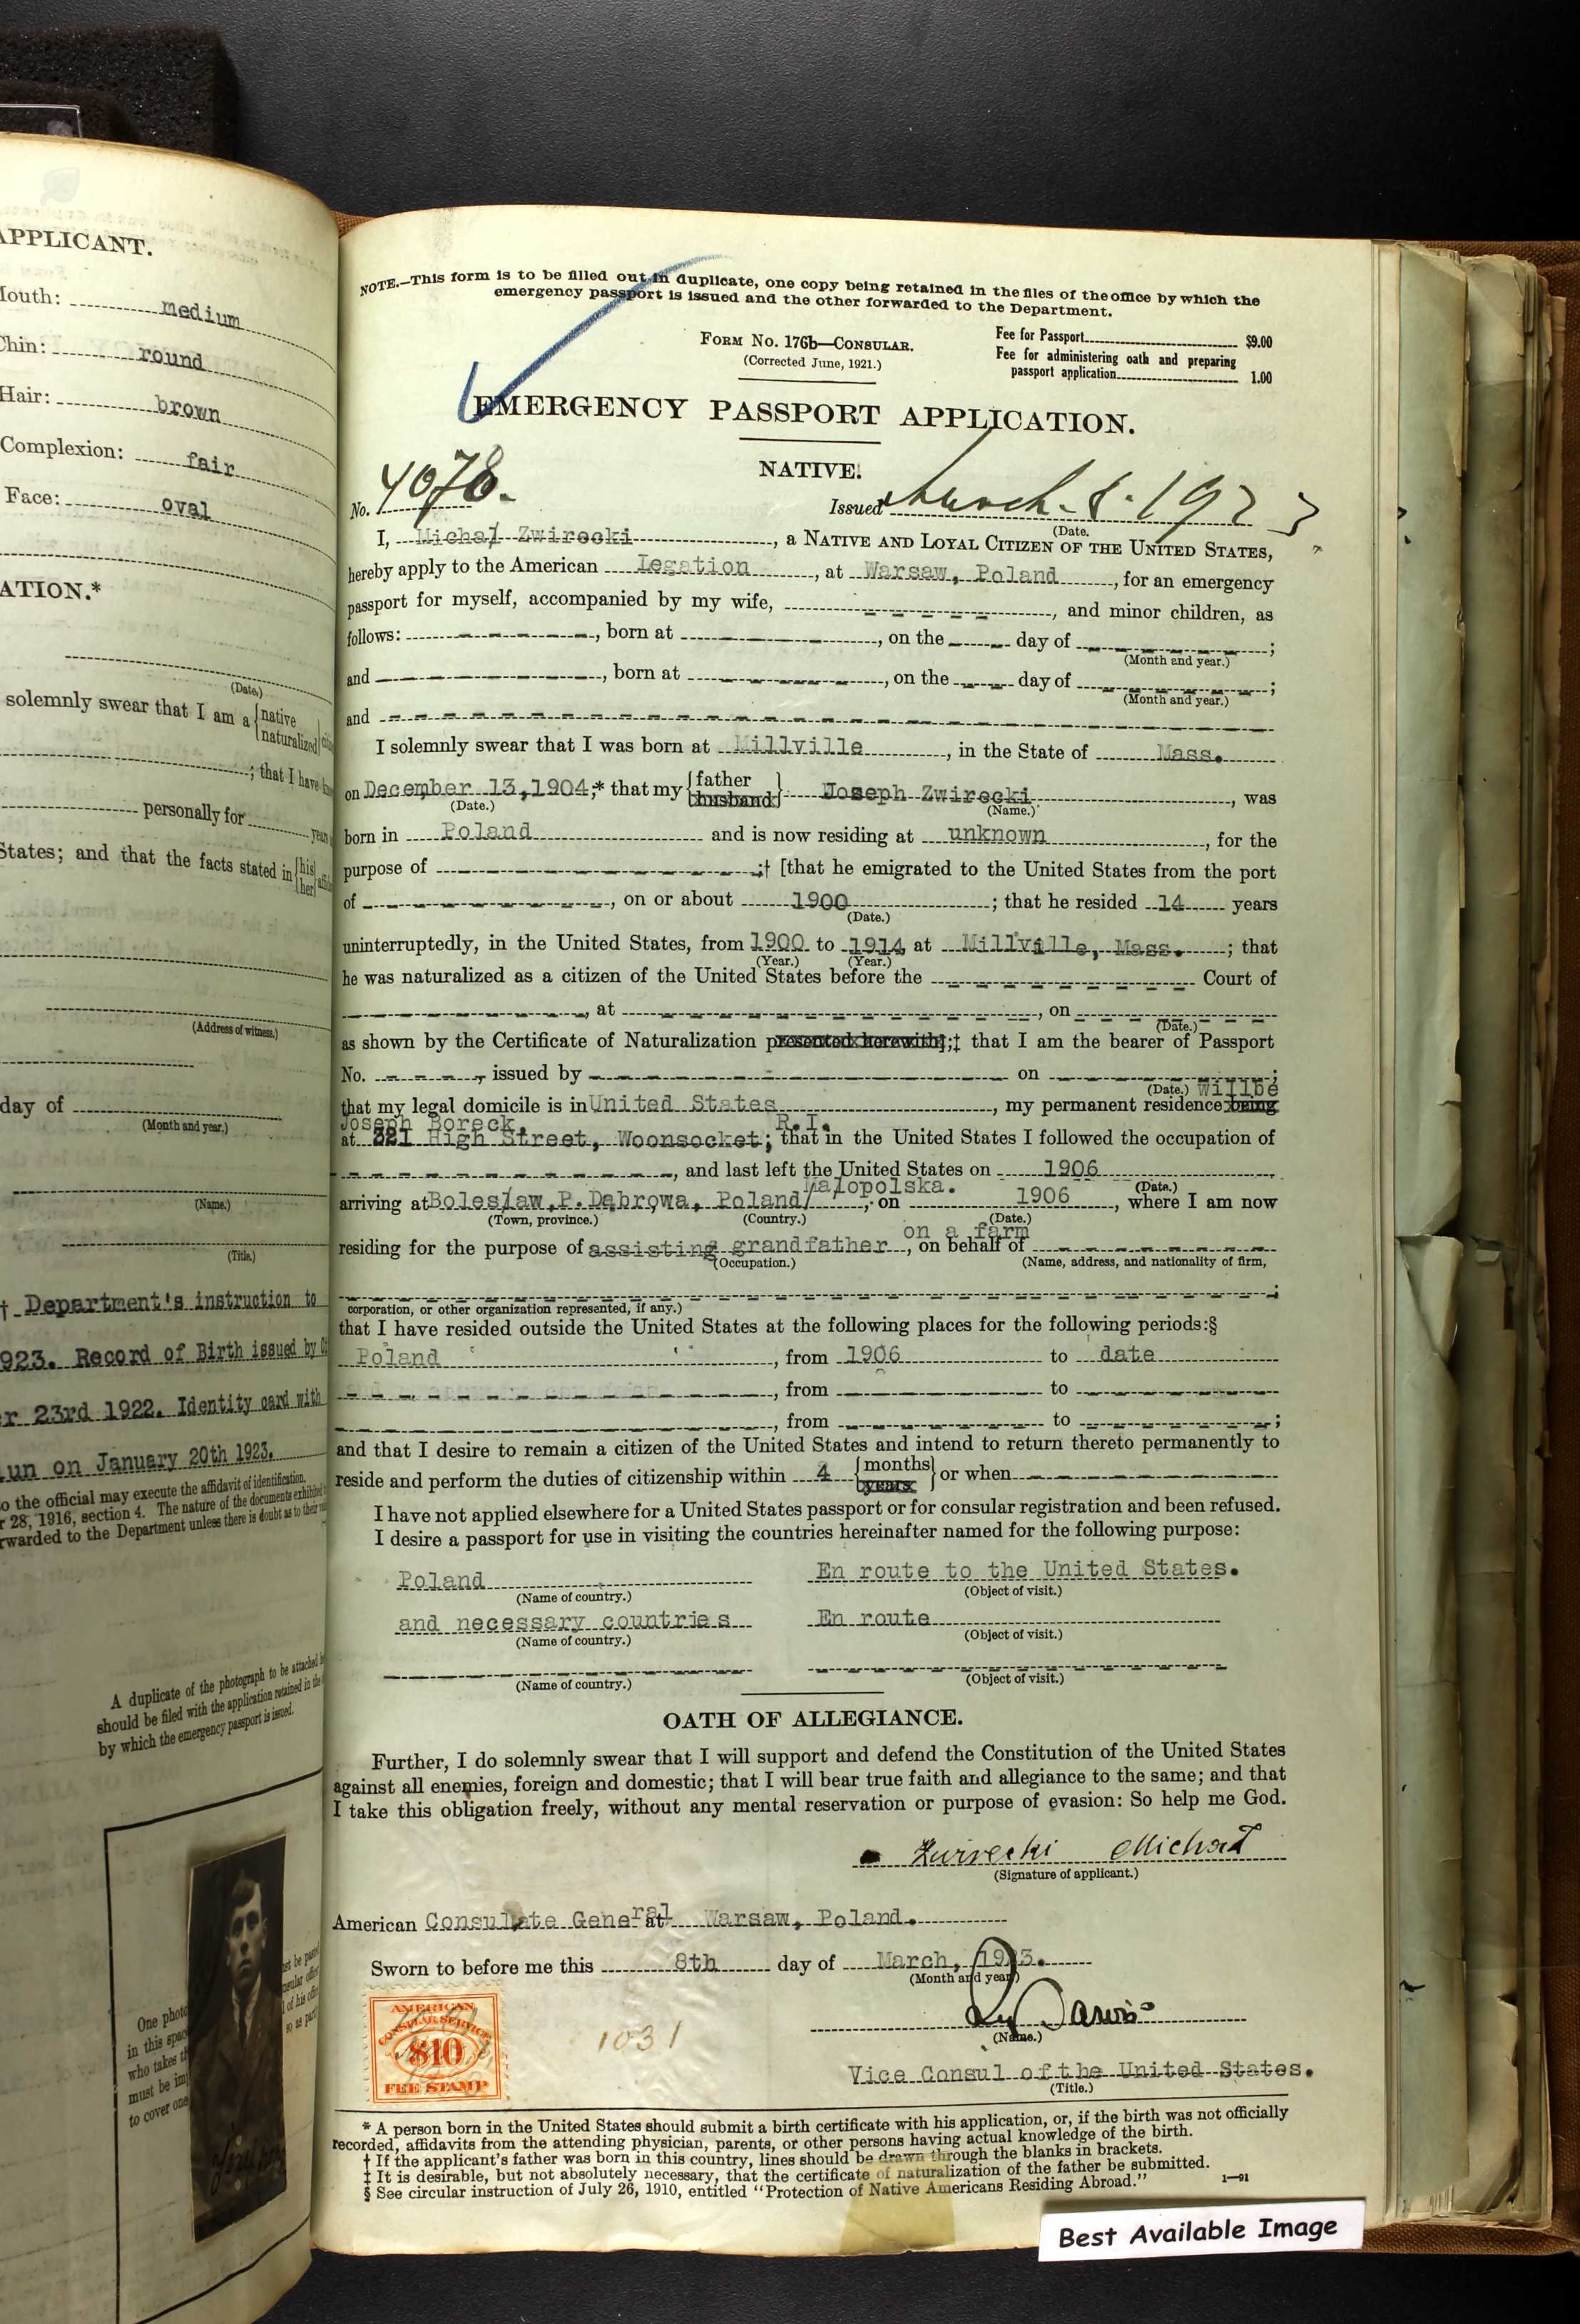 APPLICANT.
Mouth: medium
Chin: round
Hair: brown
Complexion: fair
Face: oval
ATION.*
(Date.)
solemnly swear that I am a {native
naturalized}
; that I have
personally for years
States; and that the facts stated in {his
her}
(Address of witness.)
day of
(Month and year.)
(Name.)
(Title.)
† Department's instruction to
923. Record of Birth issued by
r 23rd 1922. Identity card with
un on January 20th 1923.
o the official may execute the affidavit of identification.
r 28, 1916, section 4. The nature of the documents exhibited
rwarded to the Department unless there is doubt as to their
A duplicate of the photograph to be attached
should be filed with the application retained in the
by which the emergency passport is issued.
One photo
in this space
who takes th
must be im
to cover one
NOTE.—This form is to be filled out in duplicate, one copy being retained in the files of the office by which the
emergency passport is issued and the other forwarded to the Department.
FORM NO. 176b—CONSULAR.
(Corrected June, 1921.)
Fee for Passport $9.00
Fee for administering oath and preparing
passport application 1.00
EMERGENCY PASSPORT APPLICATION.
NATIVE.
No. 4078. Issued March 8. 1923
(Date.
I, Michał Zwirecki, a NATIVE AND LOYAL CITIZEN OF THE UNITED STATES,
hereby apply to the American Legation, at Warsaw, Poland, for an emergency
passport for myself, accompanied by my wife, , and minor children, as
follows: , born at , on the day of ;
(Month and year.)
and , born at , on the day of ;
(Month and year.)
and
I solemnly swear that I was born at Millville, in the State of Mass.
on December 13,1904;* that my {father
husband} Joseph Zwirecki, was
(Date.) (Name.)
born in Poland and is now residing at unknown, for the
purpose of ;† [that he emigrated to the United States from the port
of , on or about 1900; that he resided 14 years
(Date.)
uninterruptedly, in the United States, from 1900 to 1914 at Millville, Mass.; that
(Year.) (Year.)
he was naturalized as a citizen of the United States before the Court of
, at , on
(Date.)
as shown by the Certificate of Naturalization presented herewith];‡ that I am the bearer of Passport
No. , issued by on ;
(Date.) will be
that my legal domicile is in United States, my permanent residence being
Joseph Boreck, R.I.
at 321 High Street, Woonsocket; that in the United States I followed the occupation of
, and last left the United States on 1906
(Date.)
Małopolska.
arriving at Bolesław,P.Dąbrowa, Poland/, on 1906, where I am now
(Town, province.) (Country.) (Date.)
on a farm
residing for the purpose of assisting grandfather, on behalf of
(Occupation.) (Name, address, and nationality of firm,
;
corporation, or other organization represented, if any.)
that I have resided outside the United States at the following places for the following periods:§
Poland, from 1906 to date
, from to
, from to ;
and that I desire to remain a citizen of the United States and intend to return thereto permanently to
reside and perform the duties of citizenship within 4 {months
years} or when
I have not applied elsewhere for a United States passport or for consular registration and been refused.
I desire a passport for use in visiting the countries hereinafter named for the following purpose:
Poland En route to the United States.
(Name of country.) (Object of visit.)
and necessary countries En route
(Name of country.) (Object of visit.)
(Name of country.) (Object of visit.)
OATH OF ALLEGIANCE.
Further, I do solemnly swear that I will support and defend the Constitution of the United States
against all enemies, foreign and domestic; that I will bear true faith and allegiance to the same; and that
I take this obligation freely, without any mental reservation or purpose of evasion: So help me God.
Zwirecki Michał
(Signature of applicant.)
American Consulate General at Warsaw, Poland.
Sworn to before me this 8th day of March, 1923.
(Month and year)
Davis
(Name.)
Vice Consul of the United States.
(Title.)
AMERICAN
CONSULAR SERVICE
$10
FEE STAMP
1031
* A person born in the United States should submit a birth certificate with his application, or, if the birth was not officially
recorded, affidavits from the attending physician, parents, or other persons having actual knowledge of the birth.
† If the applicant's father was born in this country, lines should be drawn through the blanks in brackets.
‡ It is desirable, but not absolutely necessary, that the certificate of naturalization of the father be submitted.
§ See circular instruction of July 26, 1910, entitled "Protection of Native Americans Residing Abroad."
1—91
Best Available Image